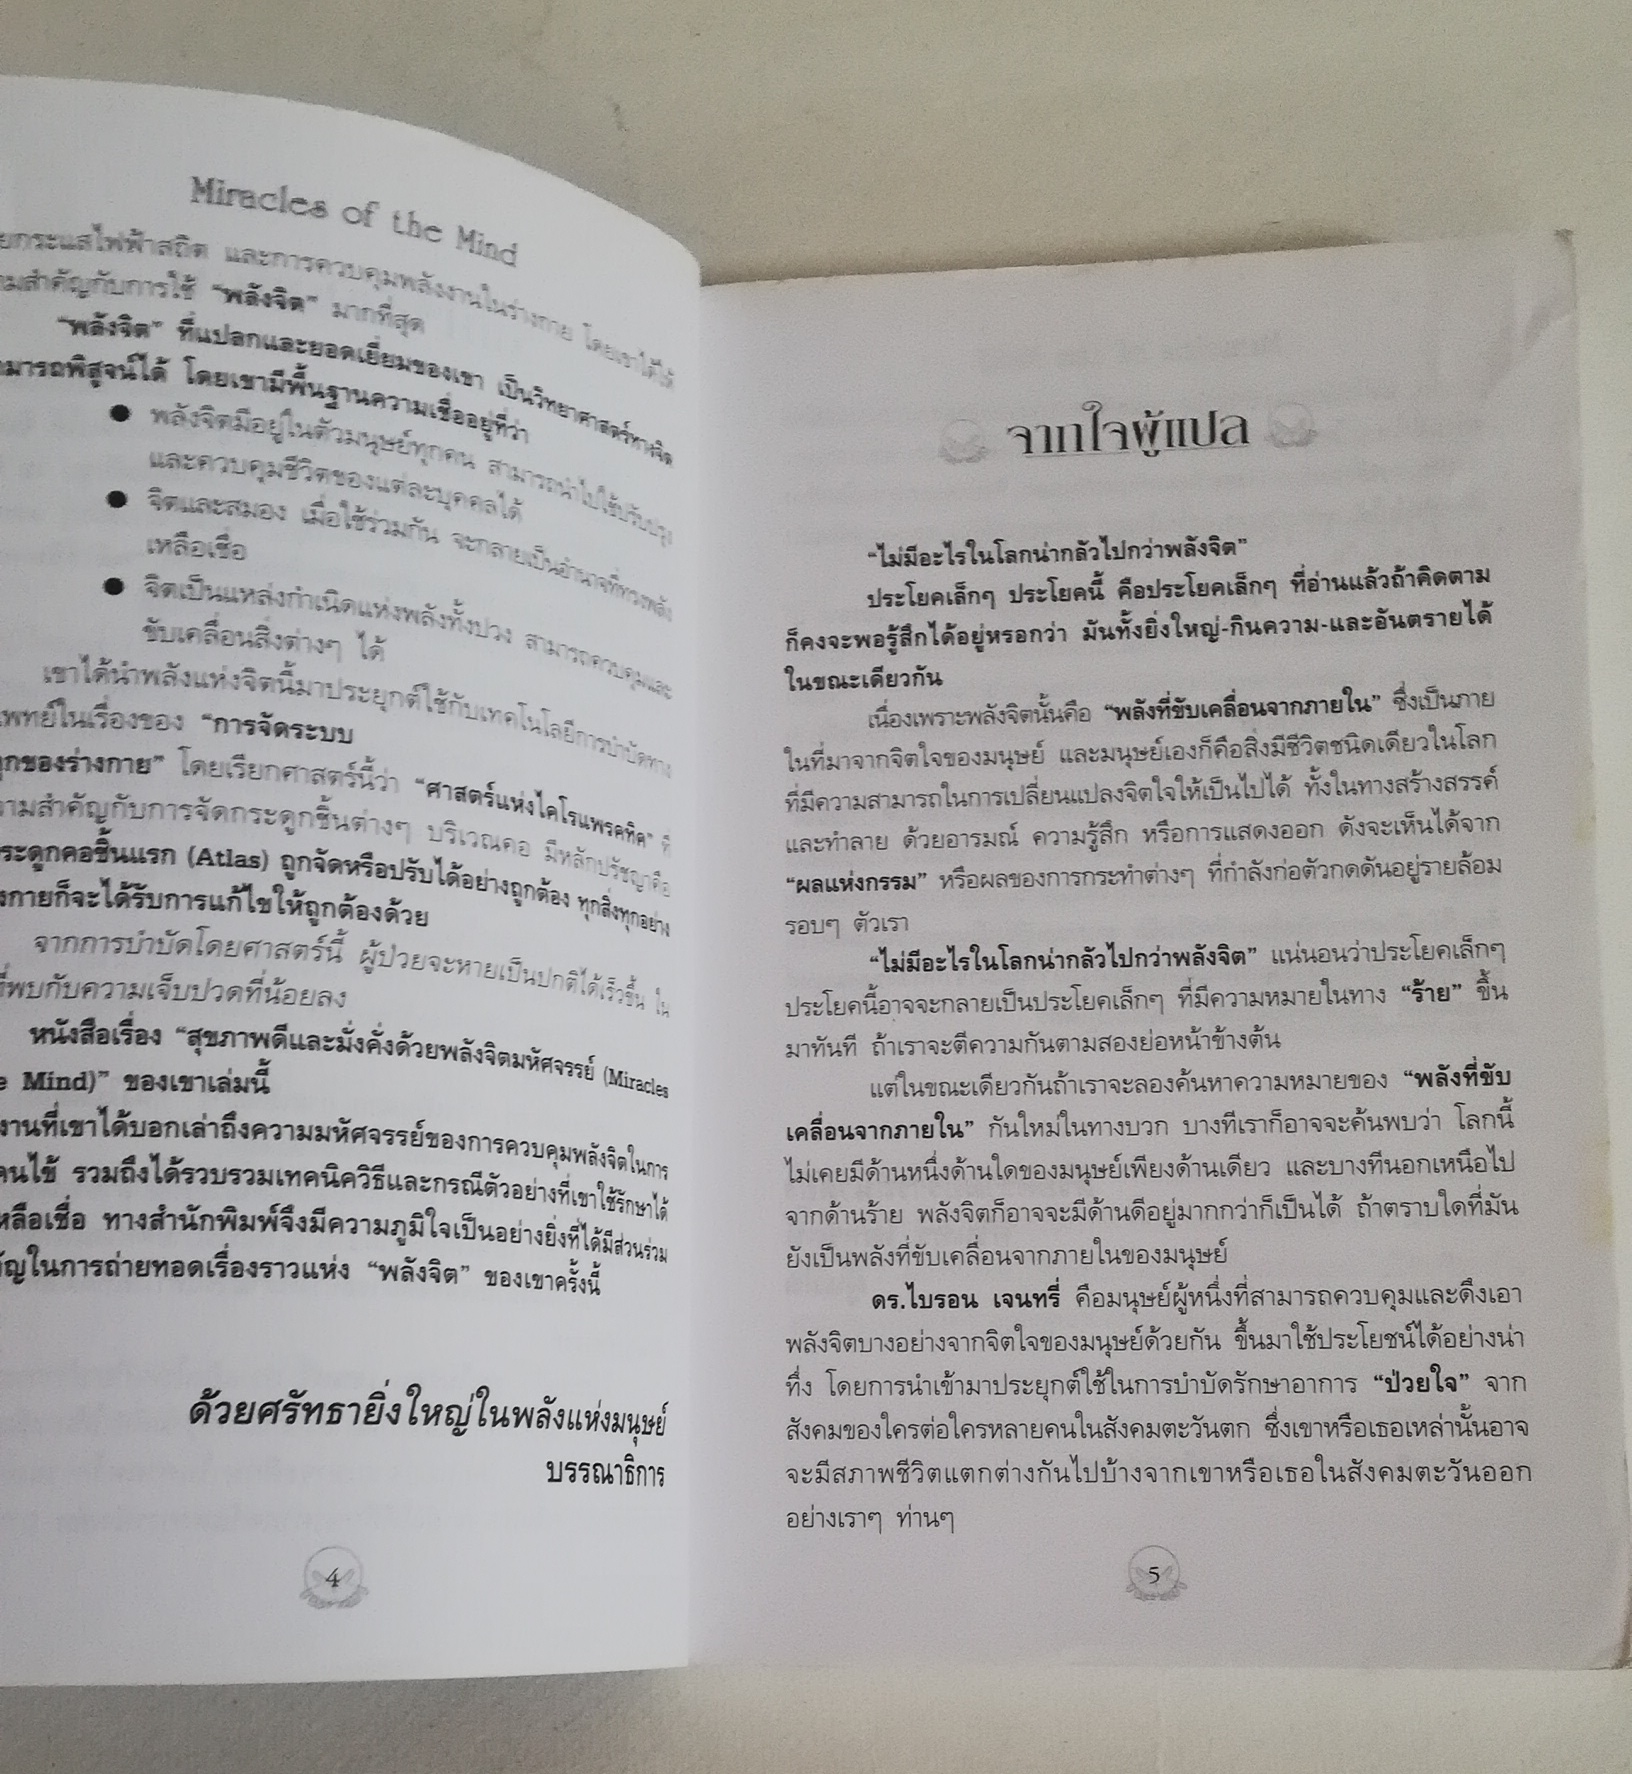 Miracles of the Mind
ยกระแสไฟฟ้าสถิต และการควบคุมพลังงานในร่างกาย โดยเขาได้ให้
ามสำคัญกับการใช้ “พลังจิต” มากที่สุด
“พลังจิต” ที่แปลกและยอดเยี่ยมของเขา เป็นวิทยาศาสตร์ทางจิต
ามารถพิสูจน์ได้ โดยเขามีพื้นฐานความเชื่ออยู่ที่ว่า
● พลังจิตมีอยู่ในตัวมนุษย์ทุกคน สามารถนำไปใช้ปรับปรุง
และควบคุมชีวิตของแต่ละบุคคลได้
● จิตและสมอง เมื่อใช้ร่วมกัน จะกลายเป็นอำนาจที่ทรงพลัง
เหลือเชื่อ
● จิตเป็นแหล่งกำเนิดแห่งพลังทั้งปวง สามารถควบคุมและ
ขับเคลื่อนสิ่งต่างๆ ได้
เขาได้นำพลังแห่งจิตนี้มาประยุกต์ใช้กับเทคโนโลยีการบำบัดทาง
แพทย์ในเรื่องของ “การจัดระบบ
ูกของร่างกาย” โดยเรียกศาสตร์นี้ว่า “ศาสตร์แห่งไคโรแพรคทิค” ที่
วามสำคัญกับการจัดกระดูกชิ้นต่างๆ บริเวณคอ มีหลักปรัชญาคือ
ระดูกคอชิ้นแรก (Atlas) ถูกจัดหรือปรับได้อย่างถูกต้อง ทุกสิ่งทุกอย่าง
งกายก็จะได้รับการแก้ไขให้ถูกต้องด้วย
จากการบำบัดโดยศาสตร์นี้ ผู้ป่วยจะหายเป็นปกติได้เร็วขึ้น ใน
ที่พบกับความเจ็บปวดที่น้อยลง
หนังสือเรื่อง “สุขภาพดีและมั่งคั่งด้วยพลังจิตมหัศจรรย์ (Miracles
e Mind)” ของเขาเล่มนี้
งานที่เขาได้บอกเล่าถึงความมหัศจรรย์ของการควบคุมพลังจิตในการ
คนไข้ รวมถึงได้รวบรวมเทคนิควิธีและกรณีตัวอย่างที่เขาใช้รักษาได้
หลือเชื่อ ทางสำนักพิมพ์จึงมีความภูมิใจเป็นอย่างยิ่งที่ได้มีส่วนร่วม
ัญในการถ่ายทอดเรื่องราวแห่ง “พลังจิต” ของเขาครั้งนี้
ด้วยศรัทธายิ่งใหญ่ในพลังแห่งมนุษย์
บรรณาธิการ
4
จากใจผู้แปล
“ไม่มีอะไรในโลกน่ากลัวไปกว่าพลังจิต”
ประโยคเล็กๆ ประโยคนี้ คือประโยคเล็กๆ ที่อ่านแล้วถ้าคิดตาม
ก็คงจะพอรู้สึกได้อยู่หรอกว่า มันทั้งยิ่งใหญ่-กินความ-และอันตรายได้
ในขณะเดียวกัน
เนื่องเพราะพลังจิตนั้นคือ “พลังที่ขับเคลื่อนจากภายใน” ซึ่งเป็นภาย
ในที่มาจากจิตใจของมนุษย์ และมนุษย์เองก็คือสิ่งมีชีวิตชนิดเดียวในโลก
ที่มีความสามารถในการเปลี่ยนแปลงจิตใจให้เป็นไปได้ ทั้งในทางสร้างสรรค์
และทำลาย ด้วยอารมณ์ ความรู้สึก หรือการแสดงออก ดังจะเห็นได้จาก
“ผลแห่งกรรม” หรือผลของการกระทำต่างๆ ที่กำลังก่อตัวกดดันอยู่รายล้อม
รอบๆ ตัวเรา
“ไม่มีอะไรในโลกน่ากลัวไปกว่าพลังจิต” แน่นอนว่าประโยคเล็กๆ
ประโยคนี้อาจจะกลายเป็นประโยคเล็กๆ ที่มีความหมายในทาง “ร้าย” ขึ้น
มาทันที ถ้าเราจะตีความกันตามสองย่อหน้าข้างต้น
แต่ในขณะเดียวกันถ้าเราจะลองค้นหาความหมายของ “พลังที่ขับ
เคลื่อนจากภายใน” กันใหม่ในทางบวก บางทีเราก็อาจจะค้นพบว่า โลกนี้
ไม่เคยมีด้านหนึ่งด้านใดของมนุษย์เพียงด้านเดียว และบางทีนอกเหนือไป
จากด้านร้าย พลังจิตก็อาจจะมีด้านดีอยู่มากกว่าก็เป็นได้ ถ้าตราบใดที่มัน
ยังเป็นพลังที่ขับเคลื่อนจากภายในของมนุษย์
ดร.ไบรอน เจนทรี่ คือมนุษย์ผู้หนึ่งที่สามารถควบคุมและดึงเอา
พลังจิตบางอย่างจากจิตใจของมนุษย์ด้วยกัน ขึ้นมาใช้ประโยชน์ได้อย่างน่า
ทึ่ง โดยการนำเข้ามาประยุกต์ใช้ในการบำบัดรักษาอาการ “ป่วยใจ” จาก
สังคมของใครต่อใครหลายคนในสังคมตะวันตก ซึ่งเขาหรือเธอเหล่านั้นอาจ
จะมีสภาพชีวิตแตกต่างกันไปบ้างจากเขาหรือเธอในสังคมตะวันออก
อย่างเราๆ ท่านๆ
5